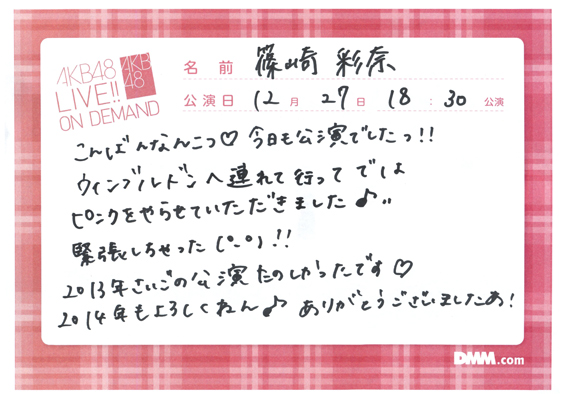 AKB48
LIVE!!
ON DEMAND
AKB
48
名前 篠崎 彩奈
公演日 12月 27日 18:30 公演
こんばんなんこつ♡ 今日も公演でしたっ!!
ウィンブルドンへ連れて行って では
ピンクをやらせていただきました♪"
緊張しちゃった(°_°)!!
2013年さいごの公演 たのしかったです♡
2014年もよろしくねん♪ ありがとうございましたあ!
DMM.com